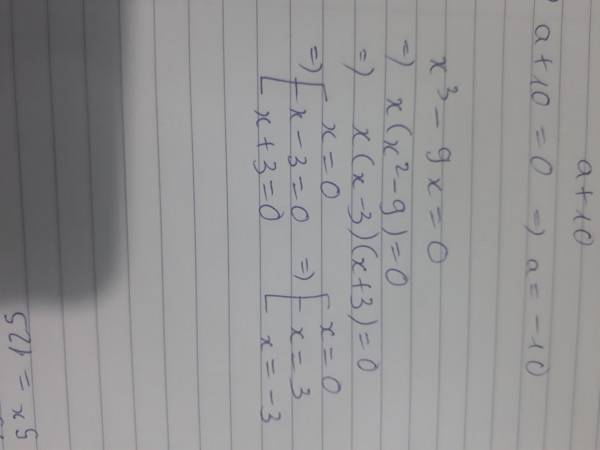 a+10
a+10=0 => a=-10
x³-9x=0
=> x(x²-9)=0
=> x(x-3)(x+3)=0
=> [ x=0 => [ x=0
x-3=0 x=3
x+3=0 x=-3
5x=125